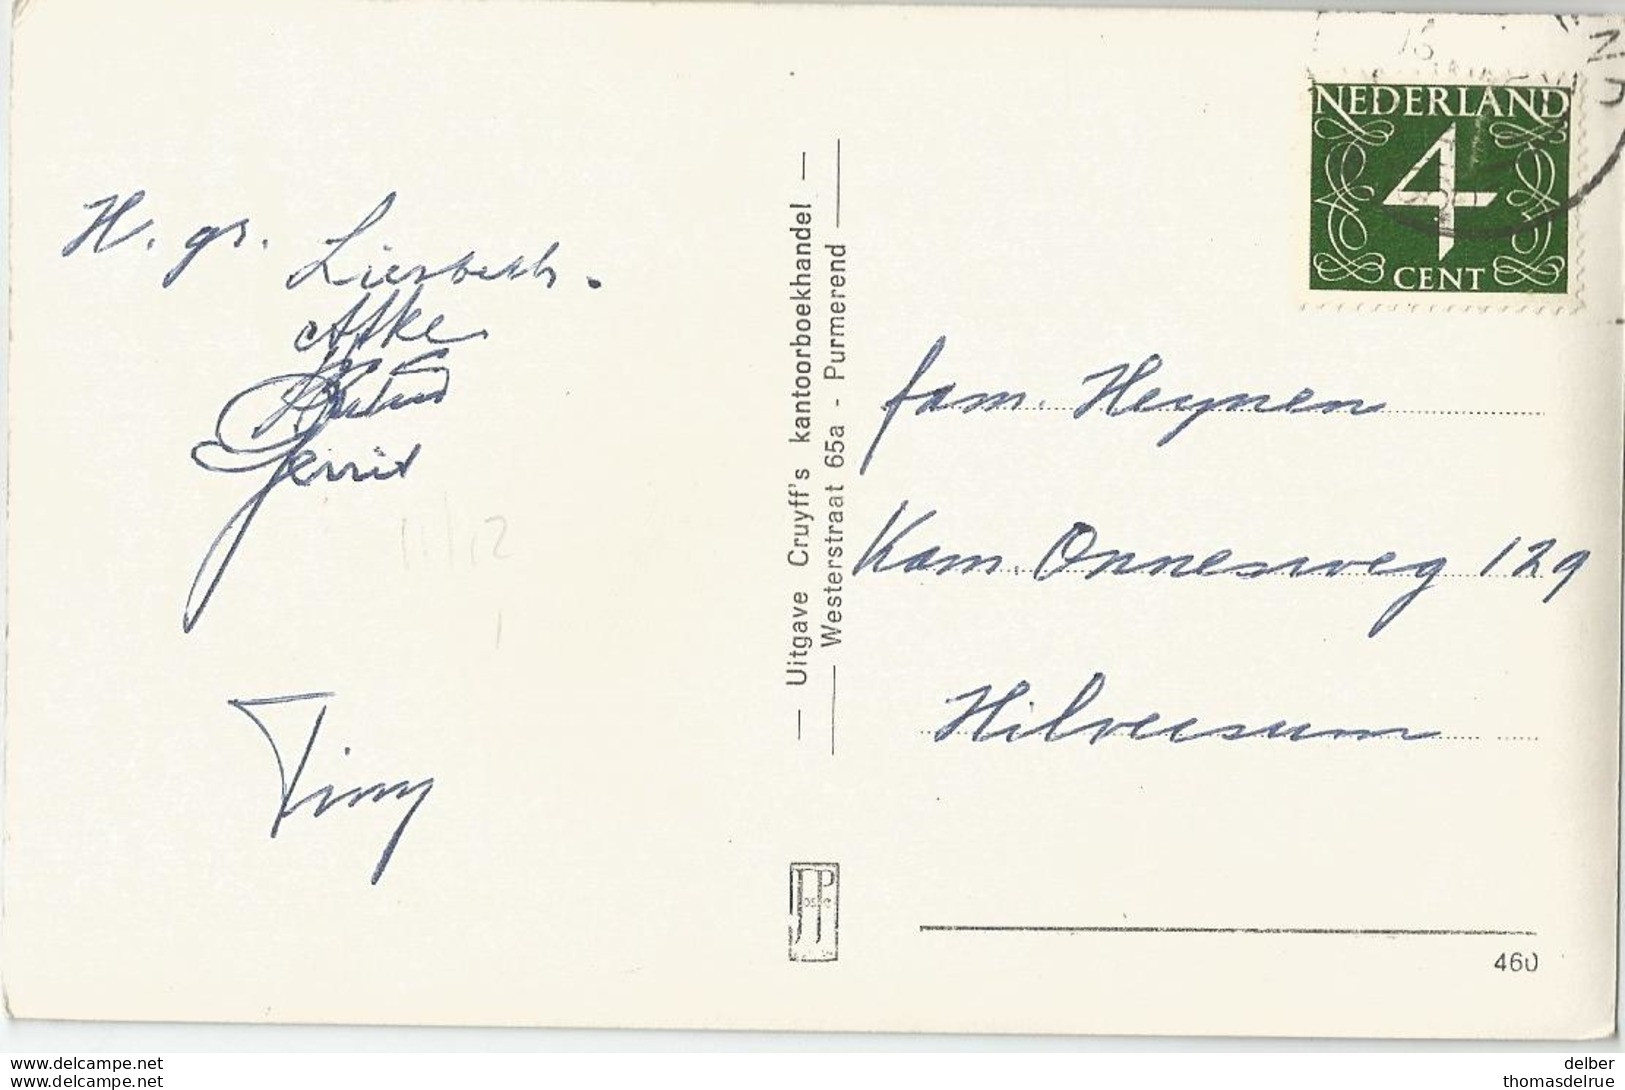 H. gr. Liesbeth.
Afke
Ruud
Gerrit
11/12
Tiny
— Uitgave Cruyff's kantoorboekhandel —
— Westerstraat 65a - Purmerend —
NEDERLAND
4
CENT
fam. Heynen
Kam. Onnesweg 129
Hilversum
JP
460
delcampe.net